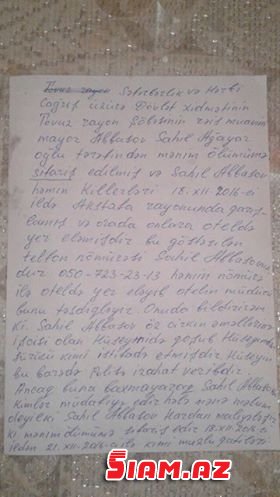 Tovuz rayon Səfərbərlik və Hərbi
Çağrış üzrə Dövlət Xidmətinin
Tovuz rayon Şöbəsinin rəis muavini
mayor Abbasov Sahil Ağayar
oğlu tərəfindən mənim ölümümə
sifariş edilmiş və Sahil Abbasov
həmin killerləri 18.XII-2016-ci
ildə Akstafa rayonunda qarşı-
lamış və orada onlara oteldə
yer eləmişdir bu göstərilən
telfon nömürəsi Sahil Abbasovun
dur 050-723-23-13 həmin nömürə
ilə oteldə yer eləyib otelin müdürü
bunu təsdiqləyir. Onuda bildirirəm
ki. Sahil Abbasov öz çirkin əməllərinə
işçisi olan Hüseynidə qoşub Hüseyndən
sürücü kimi istifadə etmişdir Hüseyn
bu barədə Polisə izahat veribdir.
Ancaq buna baxmayaraq Sahil Abbasov
kimlər müdafiyə edir hələ mənə məlum
deyil ki Sahil Abbasov Hardan maliyələşir
ki mənim ölümümə sifariş edir 18.XII-2016-ci
ildən 21.XII-2016-ci ilə kimi
SİAM.AZ